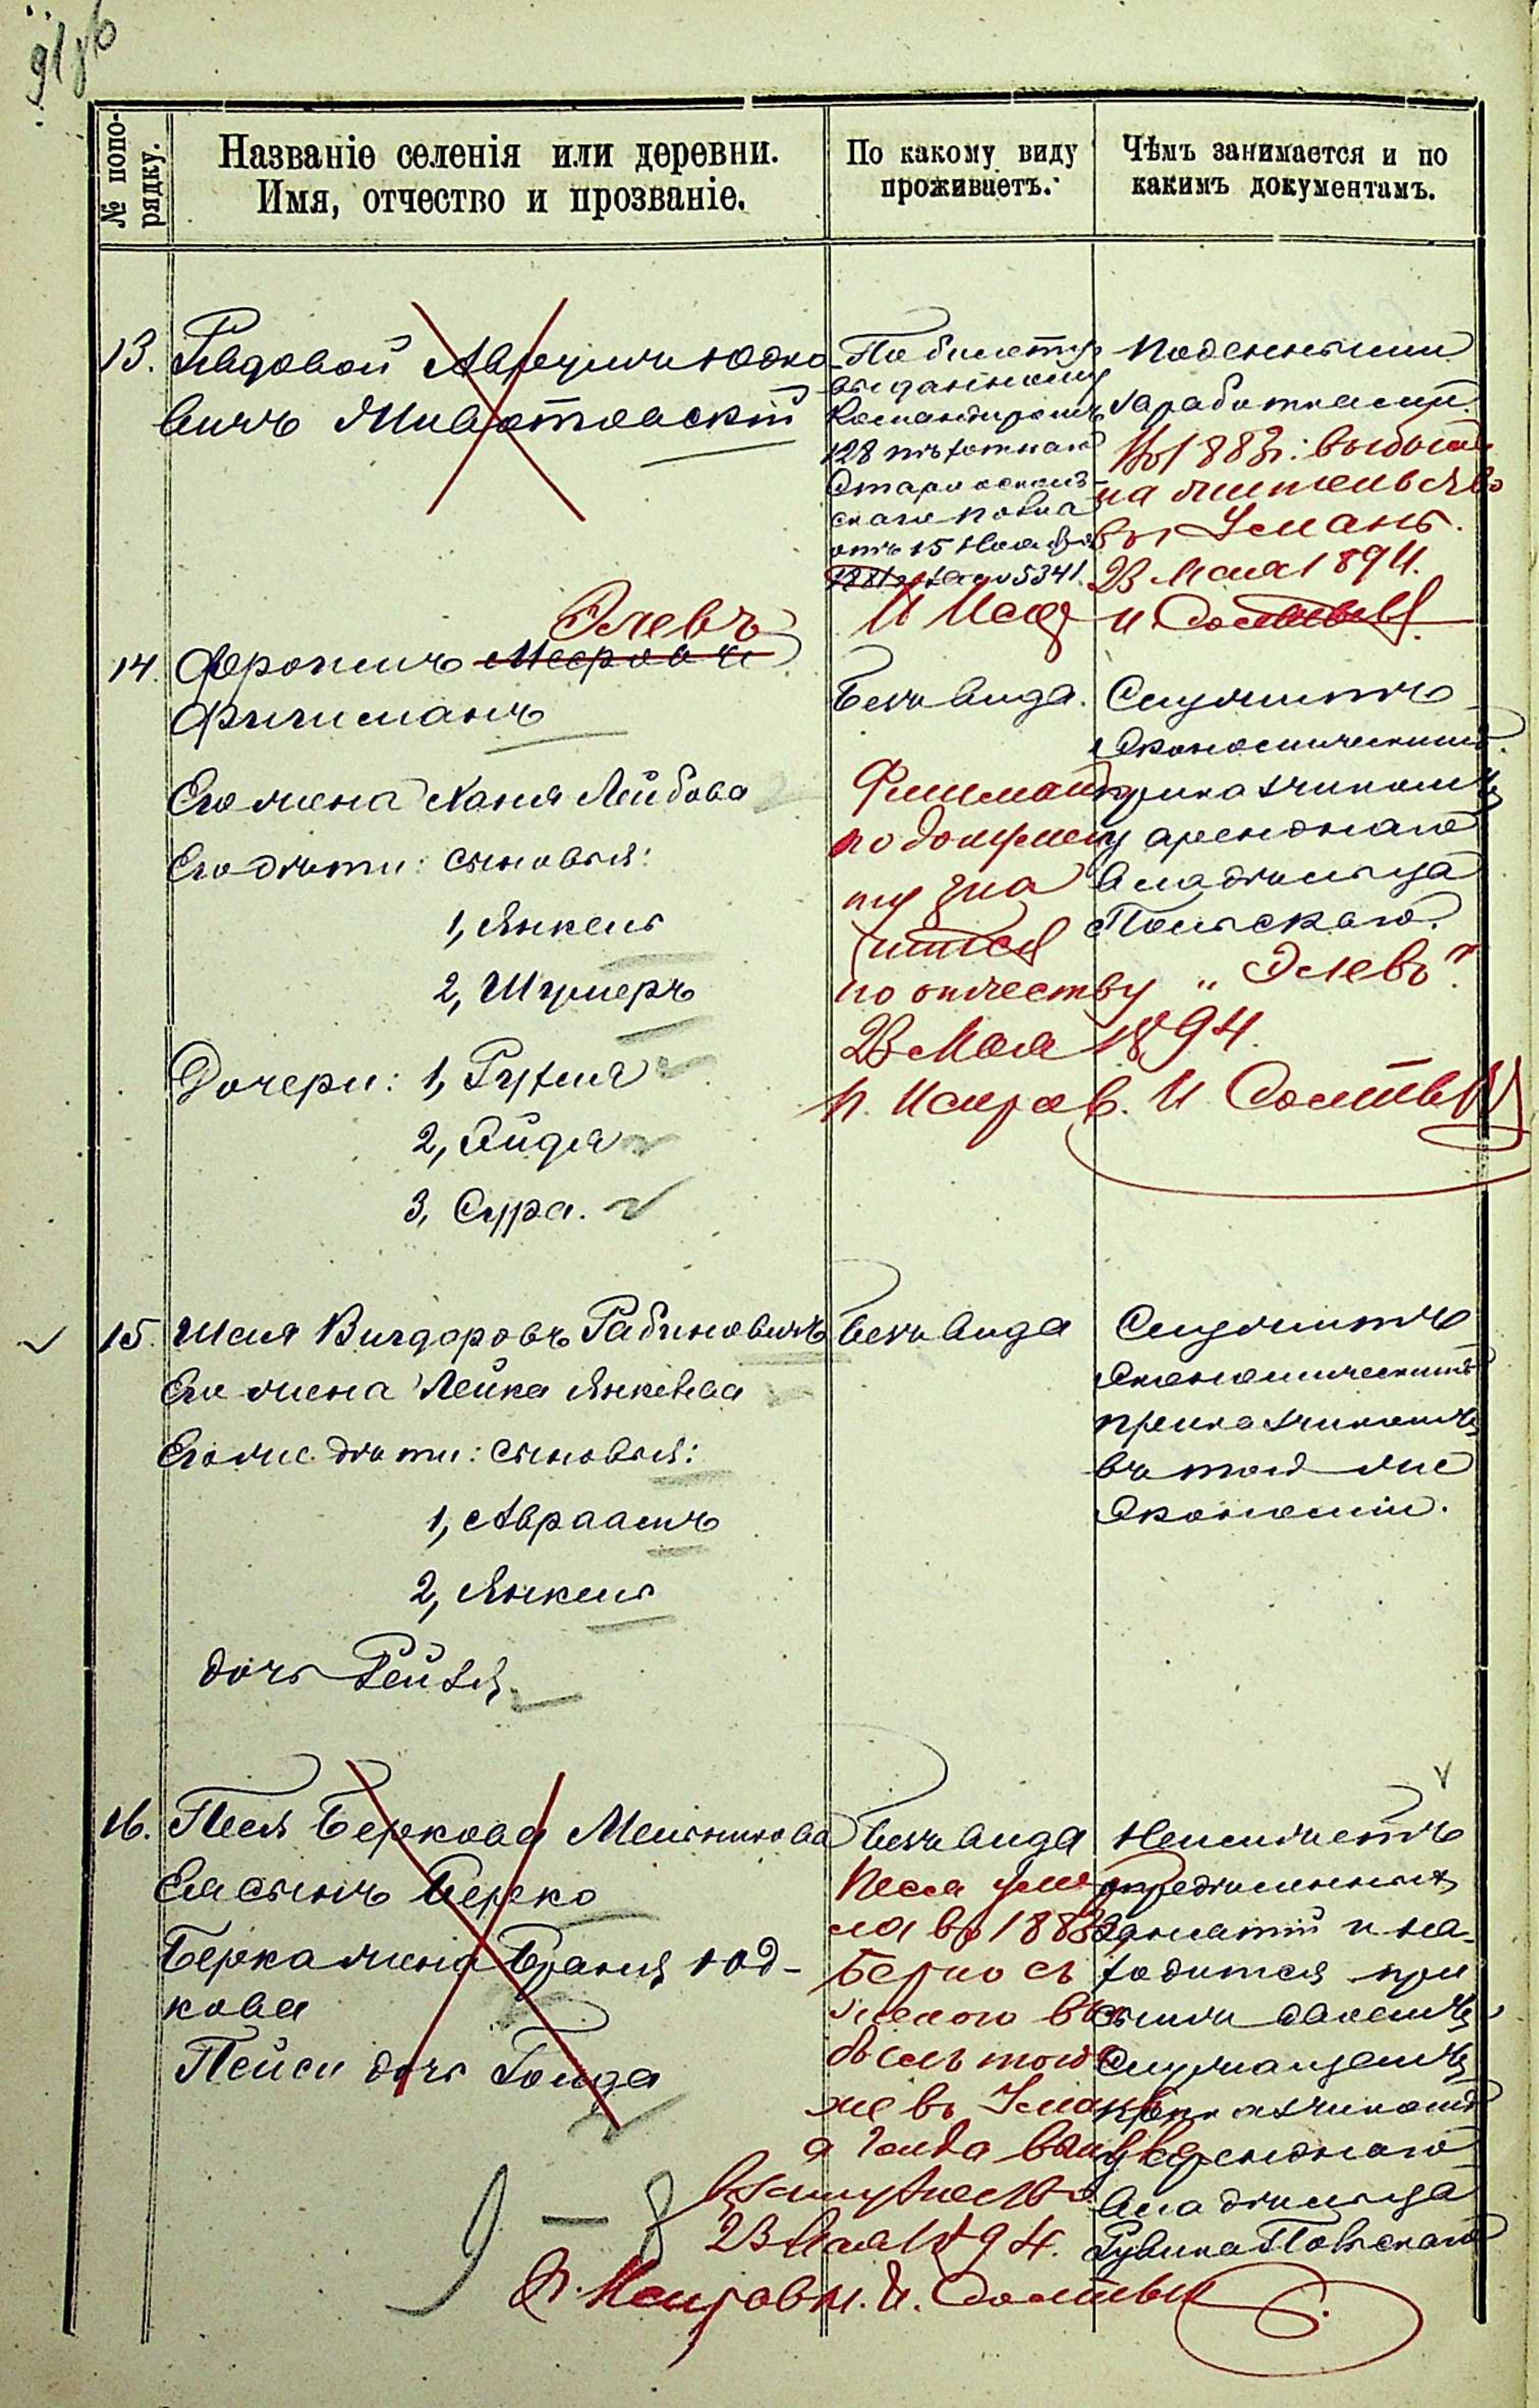 № попо-
рядку.
Названіе селенія или деревни.
Имя, отчество и прозваніе.
По какому виду
проживаетъ.
Чѣмъ занимается и по
какимъ документамъ.
13. Рядовой Аврумъ Юдко-
вичъ
По билету
выданному
Командиромъ
128 пѣхотнаго
Старооскол-
скаго полка
отъ 15 Ноября
1881 г. за № 5341.
Поденными
заработками.
Въ 1883 г. выбылъ
на жительство
въ Умань.
23 Мая 1894.
14. Фроимъ Мееровъ
Элевъ
Фишманъ
Его жена Ханя Лейбова
Его дѣти: сыновья:
1, Янкель
2, Шулимъ
Дочери: 1, Рухля
2, Эйдля
3, Сура.
Безъ вида.
Фишманъ
по докумен
ту зна
чится
по отчеству „Элевъ"
23 Мая 1894.
П. Исправ. И.
Служитъ
экономическимъ
приказчикомъ
у аренднаго
владѣльца
15. Шая Вигдоровъ Рабиновичъ
Его жена Лейка Янкелева
Его же дѣти: сыновья:
1, Авраамъ
2, Янкель
дочь Рейзя
Безъ вида
Служитъ
экономическимъ
приказчикомъ
въ той же
экономіи.
16. Песя Беркова Мельникова
Ея сынъ Берко
Берка жена Браня Юд-
кова
Пейси дочь Голда
Безъ вида
Песя умер
ла въ 1883
Берко съ
женою вы
былъ тоже
же въ Умань
а Голда вышла
въ замужество
23 Мая 1894.
П. Исправн. И.
Неимѣетъ
опредѣленныхъ
занятій и на-
ходится при
сынѣ своемъ,
служащемъ
приказчикомъ
у аренднаго
владѣльца
Рувина
9 – 8